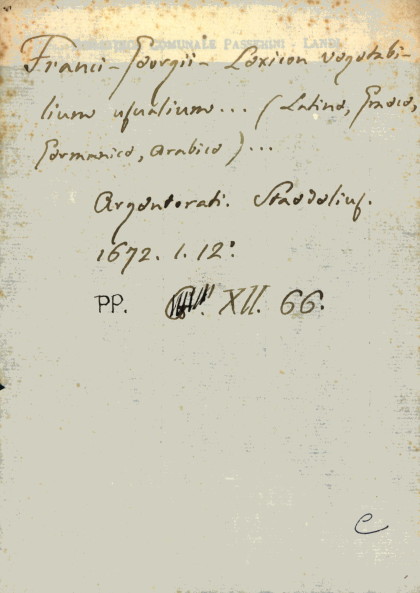 BIBLIOTECA COMUNALE PASSERINI - LANDI
Franci - Georgii - Lexicon vegetabi-
lium usualium... (Latine, Graece,
Germanice, Arabice)...
Argentorati. Staedelius.
1672. 1. 12°.
PP. XII. 66.
C